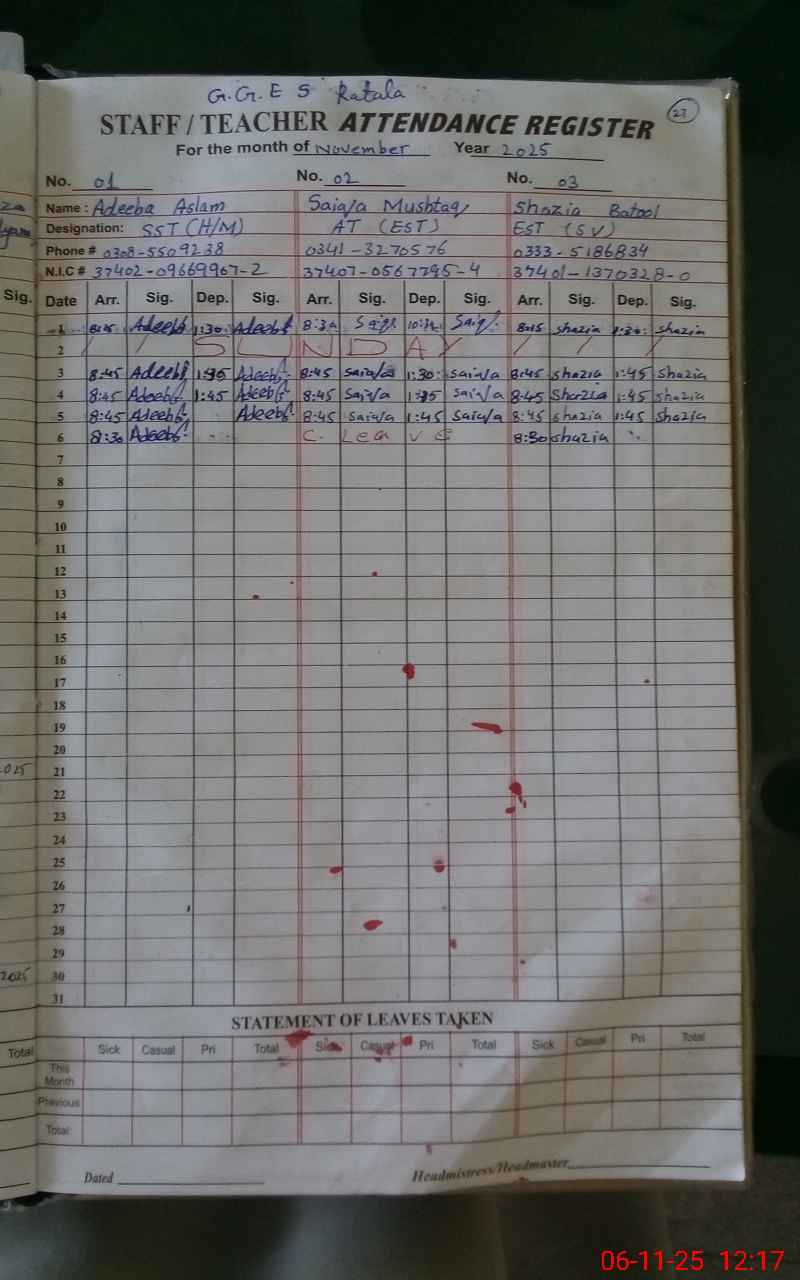 G.G.E S Ratala
27
STAFF / TEACHER ATTENDANCE REGISTER
For the month of November Year 2025
No. 01 No. 02 No. 03
Name : Adeeba Aslam Saiqa Mushtaq Shazia Batool
Designation: SST (H/M) AT (EST) EST (SV)
Phone # 0308-5509238 0341-3270576 0333-5186834
N.I.C # 37402-0966990-2 37407-0567795-4 37401-1370328-0
Sig. Date Arr. Sig. Dep. Sig. Arr. Sig. Dep. Sig. Arr. Sig. Dep. Sig.
1 8:45 Adeeba 1:30 Adeeba 8:30 Saiqa Saiqa 8:45 shazia 1:30 shazia
2 / / S U N D A Y / / /
3 8:45 Adeeba Adeeba 8:45 saiqa 1:30 saiqa 8:45 shazia 1:45 shazia
4 8:45 Adeeba 1:45 Adeeba 8:45 saiqa saiqa 8:45 Shazia 1:45 shazia
5 8:45 Adeeba Adeeba 8:45 saiqa 1:45 saiqa 8:45 shazia 1:45 shazia
6 8:30 Adeeba C. Lea v e 8:30 shazia
7
8
9
10
11
12
13
14
15
16
17
18
19
20
21
22
23
24
25
26
27
28
29
30
31
2025
STATEMENT OF LEAVES TAKEN
Total Sick Casual Pri Total Sick Casual Pri Total Sick Casual Pri Total
This Month
Previous
Total
Dated Headmistress/Headmaster
06-11-25 12:17